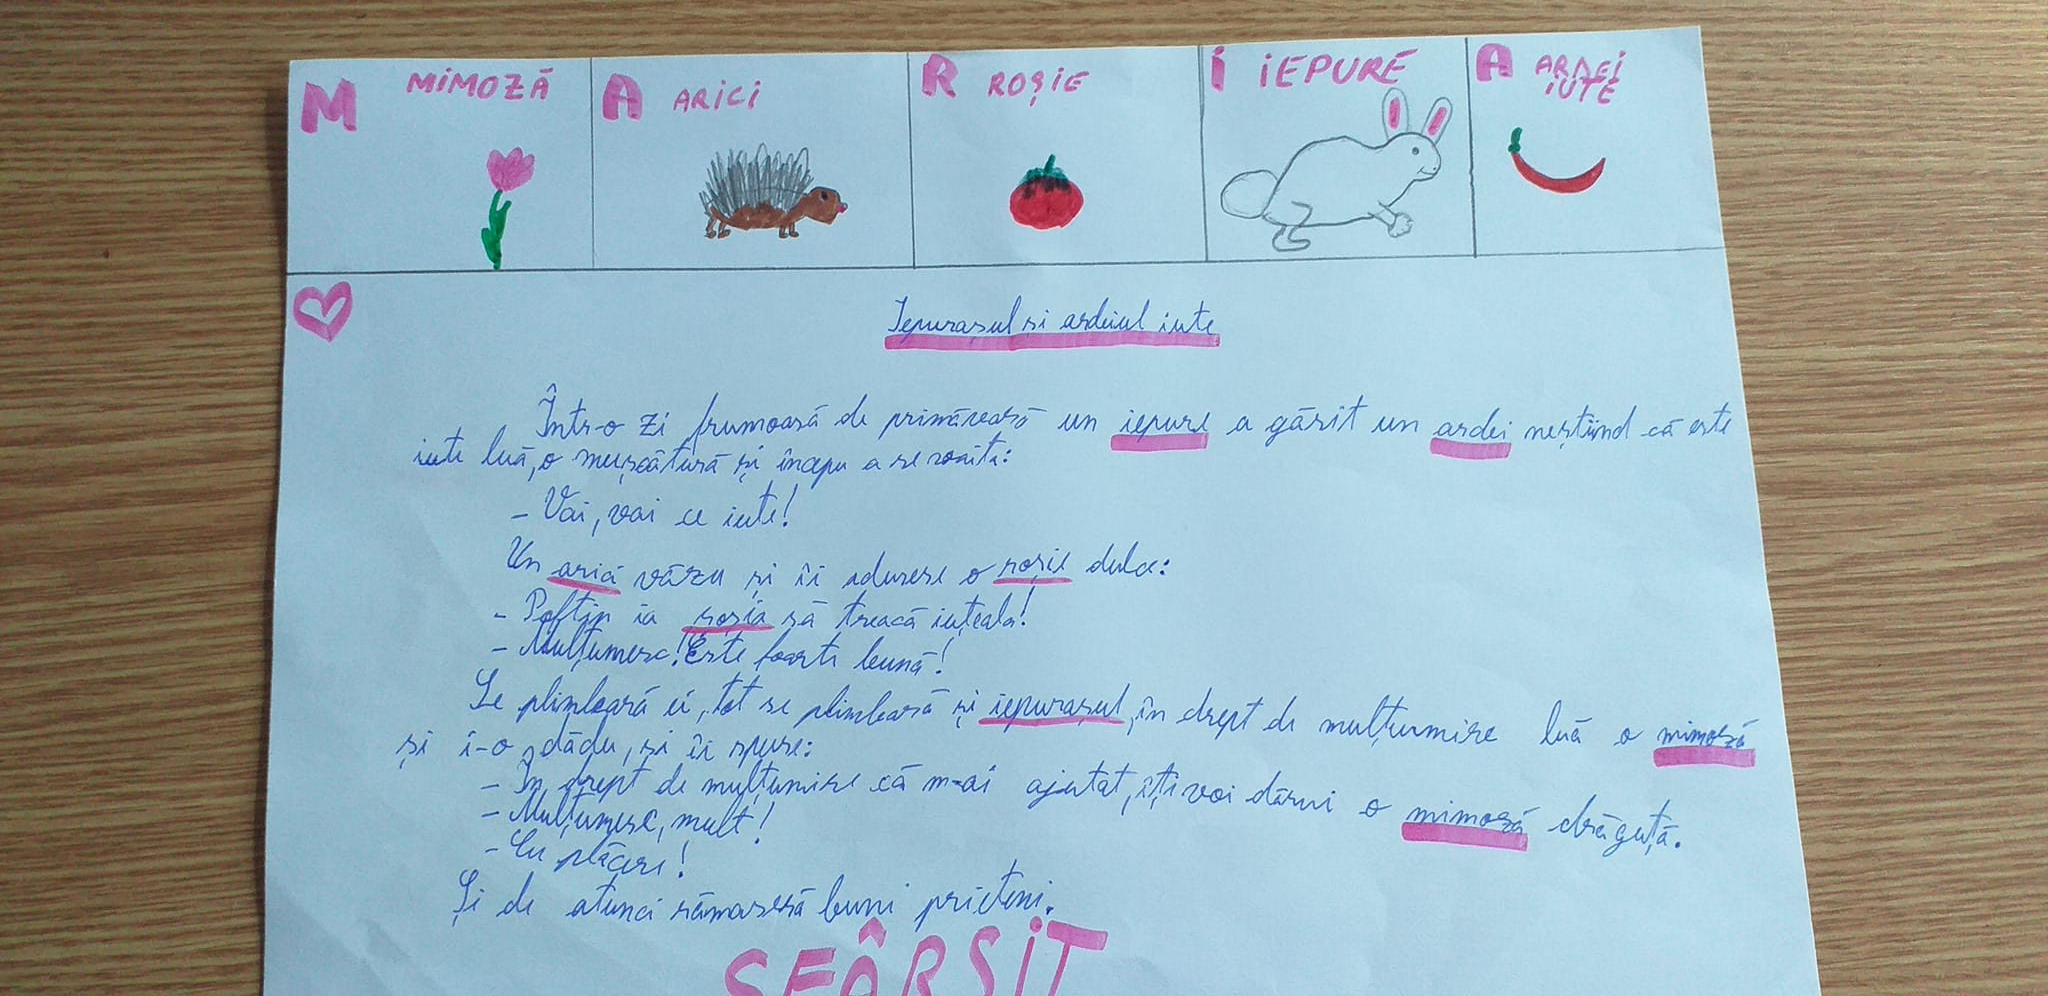 M MIMOZĂ A ARICI R ROȘIE I IEPURE A ARDEI IUTE
Iepurașul și ardeiul iute
Într-o zi frumoasă de primăvară un iepure a găsit un ardei neștiind că este
iute luă, o mușcătură și începu a se vaita:
- Vai, vai ce iute!
Un arici văzu și îi adusese o roșie dulce:
- Poftin ia roșia să treacă iuțeala!
- Mulțumesc! Este foarte bună!
Se plimbară ei, tot se plimbară și iepurașul, în drept de mulțumire luă o mimoză
și i-o dădu, și îi spuse:
- În drept de mulțumire că m-ai ajutat, îți voi dărui o mimoză drăguță.
- Mulțumesc, mult!
- Cu plăcere!
Și de atunci rămaseră buni prieteni.
SFÂRȘIT